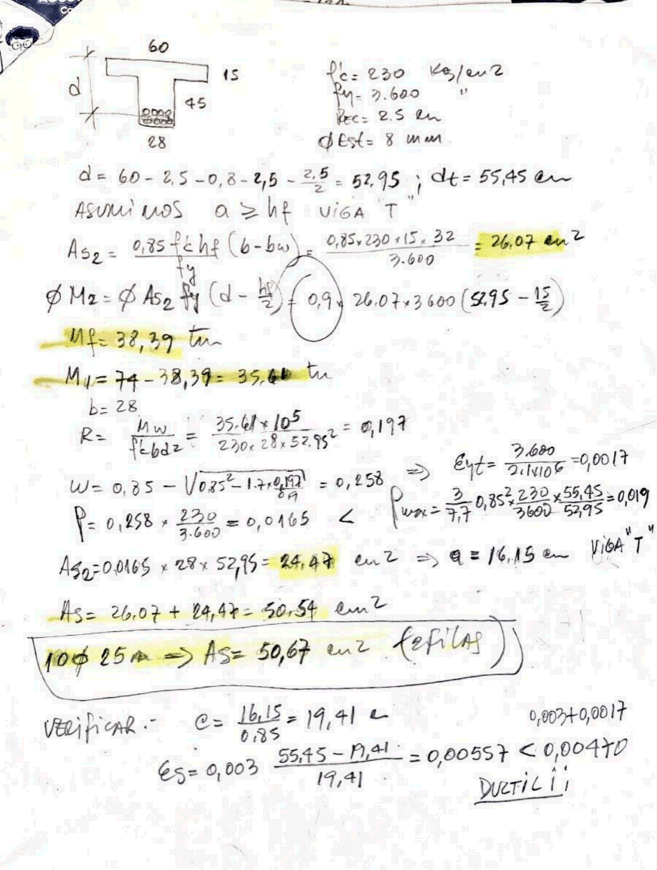 60
15
d
45
28
f'c = 230 Kg/cm2
fy = 3.600 "
Rec = 2.5 cm
φ Est = 8 mm
d = 60 - 2,5 - 0,8 - 2,5 - 2,5/2 = 52.95 ; dt = 55,45 cm
ASUMIMOS a ≥ hf VIGA "T"
As2 = 0,85 f'c hf/fy (b - bw) = 0,85x230x15x32/3.600 = 26,07 cm2
φ M2 = φ As2 fy (d - hf/2) = 0,9x 26.07x3600 (52.95 - 15/2)
Mf = 38,39 tm
M1 = 74 - 38,39 = 35.61 tm
b = 28
R = Mw/f'c bd2 = 35.61x10^5/230x28x52.95^2 = 0,197
w = 0,85 - √(0.85^2 - 1.7x0,197/0,9) = 0,258 ⇒ Eyt = 3.600/2.1x10^6 = 0,0017
ρ = 0,258 x 230/3.600 = 0,0165 < ρmax = 3/7,7 0,85^2 x 230/3600 x 55,45/52,95 = 0,019
As2 = 0,0165 x 28 x 52,95 = 24,47 cm2 ⇒ a = 16,15 cm VIGA "T"
As = 26,07 + 24,47 = 50.54 cm2
10φ 25 m ⇒ As = 50,67 cm2
VERIFICAR.- c = 16,15/0,85 = 19,41 c
0,003+0,0017
Es = 0,003 55,45 - 19,41/19,41 = 0,00557 < 0,00470
DUCTIL ¡¡